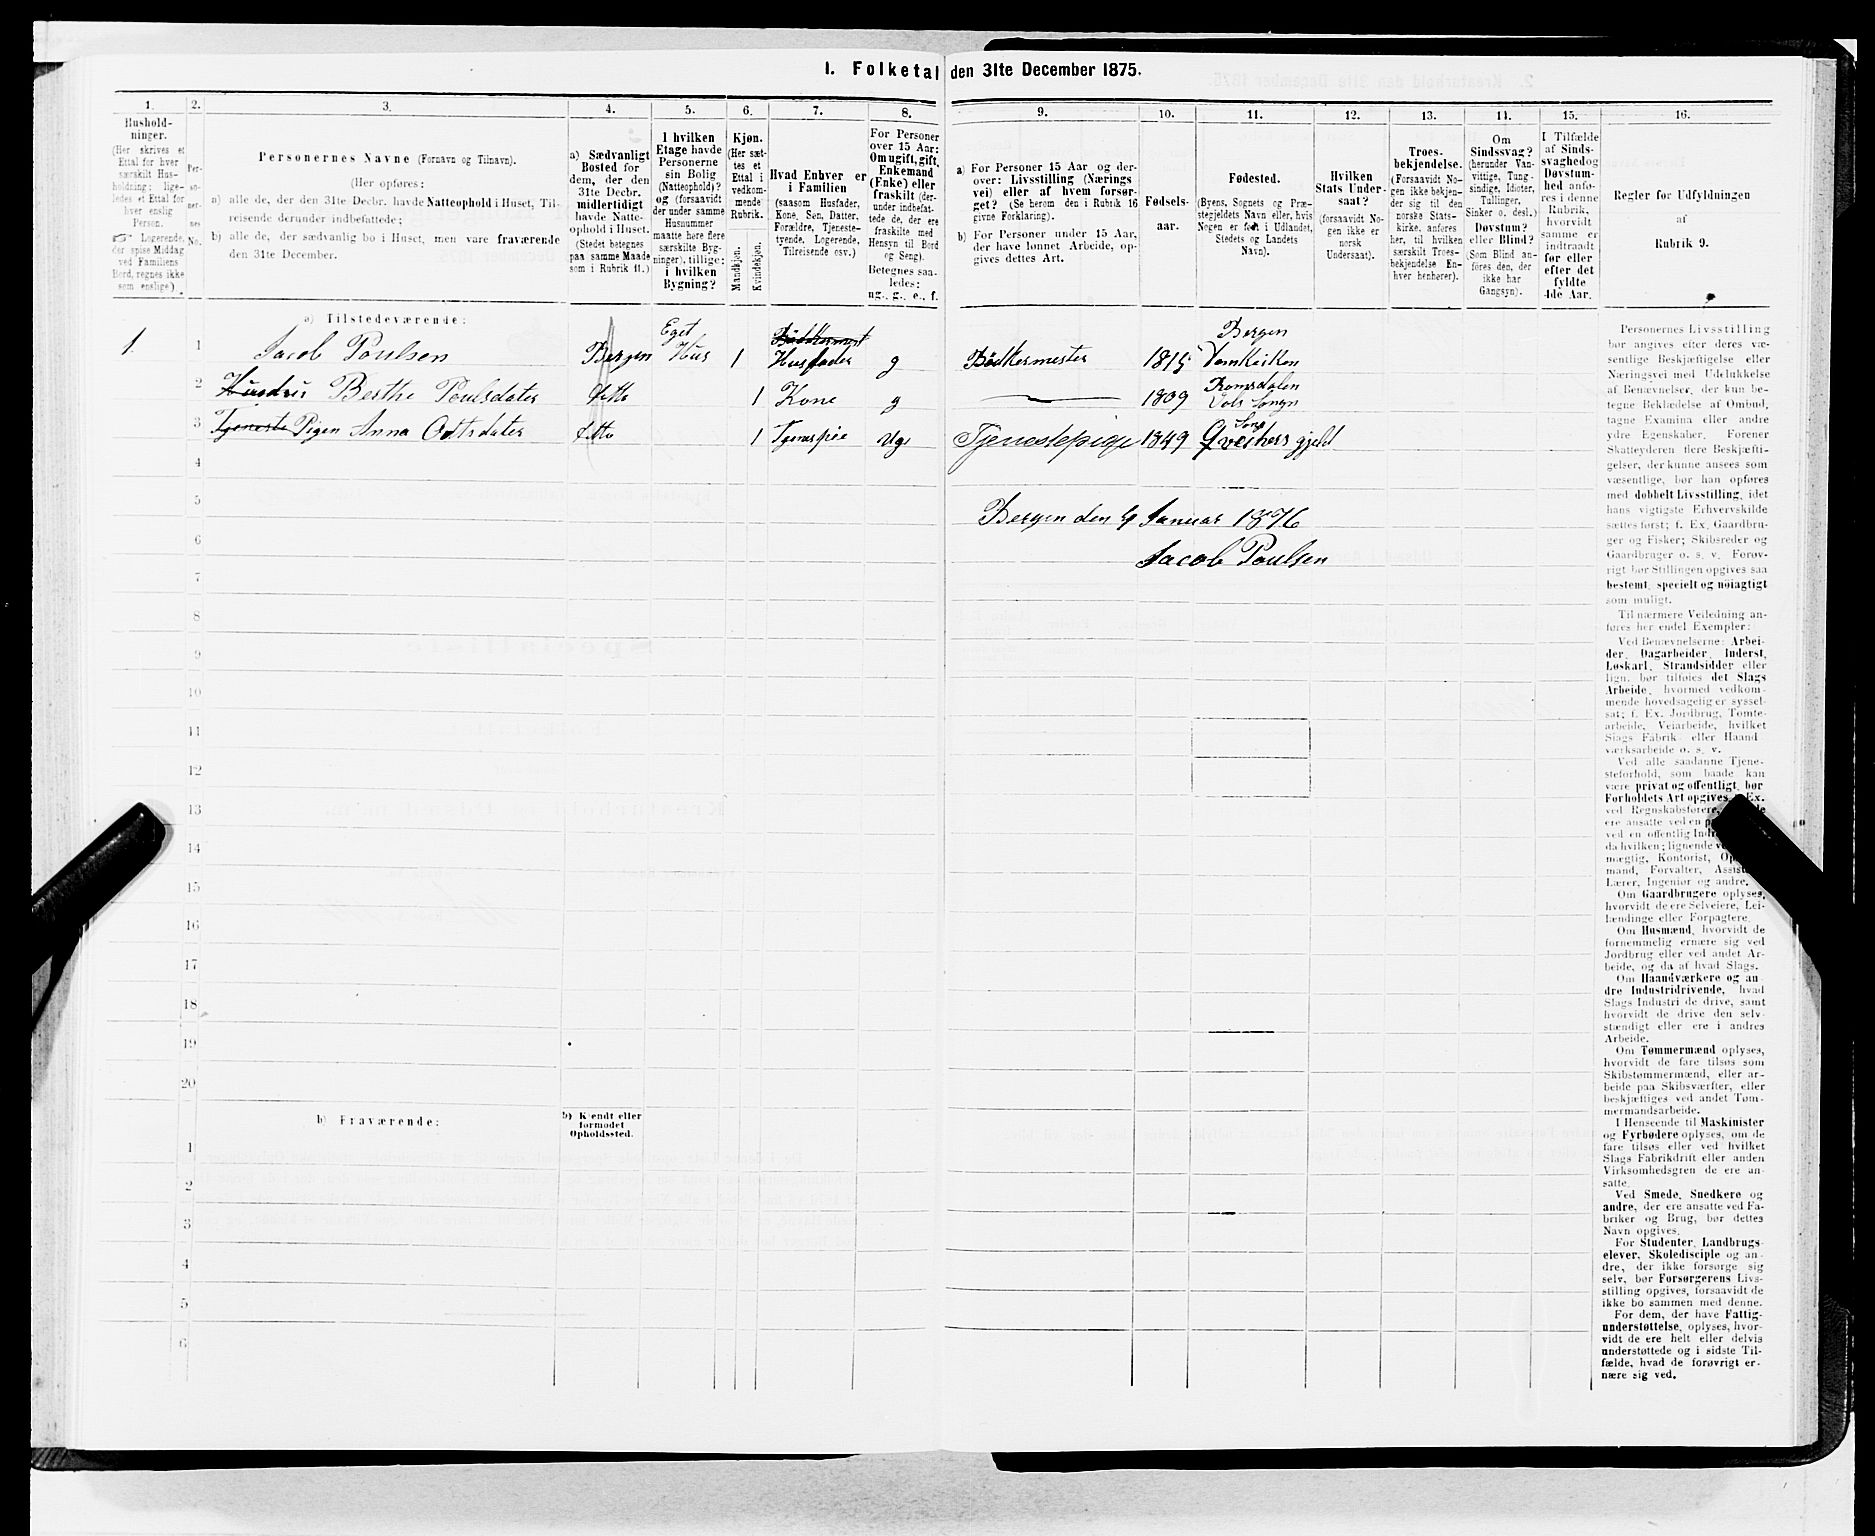 1. Folketal den 31te December 1875.
1. 2. 3. 4. 5. 6. 7. 8. 9. 10. 11. 12. 13. 14. 15. 16.
Hushold-
ninger.
(Her skrives et
Ettal for hver
særskilt Hus-
holdning; lige-
ledes et Ettal for
hver enslig
Person.
☞ Logerende,
der spise Middag
ved Familiens
Bord, regnes ikke
som enslige)
Per-
so-
ner-
nes
No.
Personernes Navne (Fornavn og Tilnavn).
(Her opføres:
a) alle de, der den 31te Decbr. havde Natteophold i Huset, Til-
reisende derunder indbefattede;
b) alle de, der sædvanlig bo i Huset, men vare fraværende
den 31te December.
a) Sædvanligt
Bosted for
dem, der den
31te Decbr.
midlertidigt
havde Natte-
ophold i Huset.
(Stedet betegnes
paa samme Maade
som i Rubrik 11.)
I hvilken
Etage havde
Personerne
sin Bolig
(Natteophold)?
og (forsaavidt
der under samme
Husnummer
maatte høre flere
særskilte Byg-
ninger), tillige:
i hvilken
Bygning?
Kjøn.
(Her sæt-
tes et
Ettal i
vedkom-
mende
Rubrik.
Mandkjøn.
Kvindekjøn.
Hvad Enhver er
i Familien
(saasom Husfader,
Kone, Søn, Datter,
Forældre, Tjeneste-
tyende, Logerende,
Tilreisende osv.)
For Personer
over 15 Aar:
Om ugift, gift,
Enkemand
(Enke) eller
fraskilt (der-
under indbefat-
tede de, der ere
fraskilte med
Hensyn til Bord
og Seng).
Betegnes saa-
ledes:
ug., g., e., f.
a) For Personer 15 Aar og der-
over: Livsstilling (Nærings
vei) eller af hvem forsør-
get? (Se herom den i Rubrik 16
givne Forklaring).
b) For Personer under 15 Aar,
der have lønnet Arbeide, op-
gives dettes Art.
Fødsels-
aar.
Fødested.
(Byens, Sognets og Præ-
stegjeldets Navn eller, hvis
Nogen er født i Udlandet,
Stedets og Landets
Navn).
Hvilken
Stats Under-
saat?
(forsaavidt No-
gen ikke er
norsk
Undersaat).
Troes-
bekjendelse.
(Forsaavidt No-
gen ikke bekjen-
der sig til den
norske Stats-
kirke, anføres
her, til hvilken
særskilt Troes-
bekjendelse En-
hver henhører).
Om
Sindssvag?
(herunder Van-
vittige, Tung-
sindige, Idioter,
Tullinger,
Sinker o. desl.)
Døvstum?
eller Blind?
(Som Blind an-
føres den, der
ikke har
Gangsyn).
I Tilfælde
af Sinds-
svaghed og
Døvstum-
hed anfø-
res i denne
Rubrik,
hvorvidt
samme er
indtraadt
før eller
efter det
fyldte
4de Aar.
Regler for Udfyldningen
af
Rubrik 9.
a) Tilstedeværende:
1 1 Jacob Poulsen Bergen Eget Hus 1 Bödkermest Husfader g Bödkermester 1815 Bergen Domkirken
2 Berthe Poulsdater ditto 1 Kone g 1809 Romsdalen
3 Tjeneste Pigen Anna Odtsdater ditto 1 Ug Tjenestepige 1849
4
5 Bergen den Januar 1876
6 Jacob Poulsen
7
8
9
10
11
12
13
14
15
16
17
18
19
20
b) Fraværende:
b) Kjendt eller
formodet
Opholdssted.
1
2
3
4
5
6
Personernes Livsstilling
bør angives efter deres væ-
sentlige Beskjæftigelse eller
Næringsvei med Udelukkelse
af Benævnelser, der kun be-
tegne Beklædelse af Ombud,
tagne Examina eller andre
ydre Egenskaber. Forener
Skatteyderen flere Beskjæfti-
gelser, der kunne ansees som
væsentlige, bør han opføres
med dobbelt Livsstilling, idet
hans vigtigste Erhvervskilde
sættes først; f. Ex. Gaardbru-
ger og Fisker; Skibsreder og
Gaardbruger o. s. v. Forøv-
rigt bør Stillingen opgives saa
bestemt, specielt og nøiagtigt
som muligt.
Til nærmere Veiledning an-
føres her endel Exempler:
Ved Benævnelserne: Arbei-
der, Dagarbeider, Inderst,
Løskarl, Strandsidder eller
lign. bør tilføies det Slags
Arbeide, hvormed vedkom-
mende hovedsagelig er syssel-
sat; f. Ex. Jordbrug, Tomte-
arbeide, Veiarbeide, hvilket
Slags Fabrik- eller Haand-
værksarbeide o. s. v.
Ved alle saadanne Tjene-
steforhold, som baade kan
være privat og offentligt, bør
Forholdets Art opgives, Ex.
ved Regnskabsførere,
ere ansatte ved en
ved en offentlig
da hvilken; lignende
mægtig, Kontorist,
mand, Forvalter,
Lærer, Ingeniør og andre.
Om Gaardbrugere oplyses,
hvorvidt de ere Selveiere, Lei-
lændinge eller Forpagtere.
Om Husmænd, hvorvidt de
fornemmelig ernære sig ved
Jordbrug eller ved andet Ar-
beide, og da af hvad Slags.
Om Haandværkere og an-
dre Industridrivende, hvad
Slags Industri de drive, samt
hvorvidt de drive den selv-
stændigt eller ere i andres
Arbeide.
Om Tømmermænd oplyses,
hvorvidt de fare tilsøs som
Skibstømmermænd, eller ar-
beide paa Skibsværfter, eller
beskjæftiges ved andet Tøm-
mermandsarbeide.
I Henseende til Maskinister
og Fyrbødere oplyses, om de
fare tilsøs eller ved hvilket
Slags Fabrikdrift eller anden
Virksomhedsgren de ere an-
satte.
Ved Smede, Snedkere og
andre, der ere ansatte ved Fa-
briker og Brug, bør dettes
Navn opgives.
For Studenter, Landbrugs-
elever, Skoledisciple og an-
dre, der ikke forsørge sig
selv, bør Forsørgerens Livs-
stilling opgives, forsaavidt de
ikke bo sammen med denne.
For dem, der have Fattig-
understøttelse, oplyses, hvor-
vidt de ere helt eller delvis
understøttede og i sidste Til-
fælde, hvad de forøvrigt er-
nære sig ved.